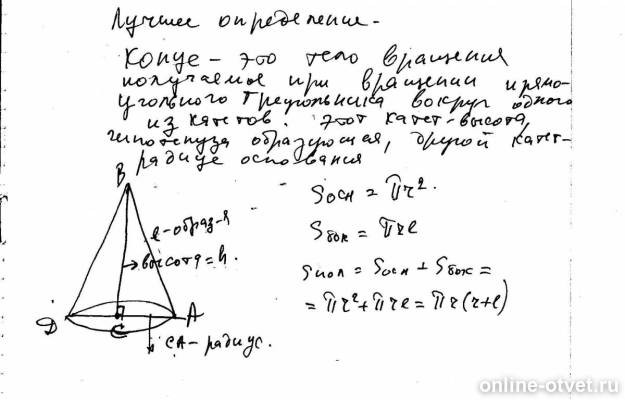 Лучшее определение-
Конус – это тело вращения
получаемое при вращении прямо-
угольного треугольника вокруг одного
из катетов. Этот катет-высота,
гипотенуза образующая, другой катет-
радиус основания
B
Sосн = πr².
l-образ-я
Sбок = πrl
высота=h.
Sпол = Sосн + Sбок =
= πr²+πrl = πr(r+l)
D
C
A
CA-радиус.
online-otvet.ru